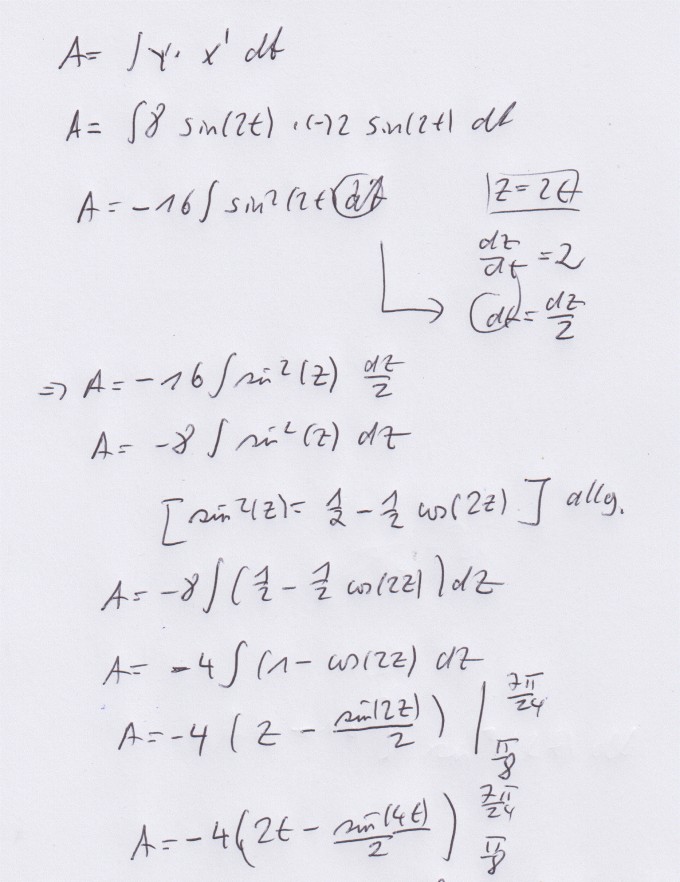 A = ∫ y · x' dt
A = ∫ 8 sin(2t) · (-) 2 sin(2t) dt
A = -16 ∫ sin²(2t) dt
z = 2t
dz/dt = 2
dt = dz/2
=> A = -16 ∫ sin²(z) dz/2
A = -8 ∫ sin²(z) dz
[ sin²(z) = 1/2 - 1/2 cos(2z) ] allg.
A = -8 ∫ ( 1/2 - 1/2 cos(2z) ) dz
A = -4 ∫ (1 - cos(2z) dz
A = -4 ( z - sin(2z)/2 ) | 7π/24 π/8
A = -4 ( 2t - sin(4t)/2 ) 7π/24 π/8